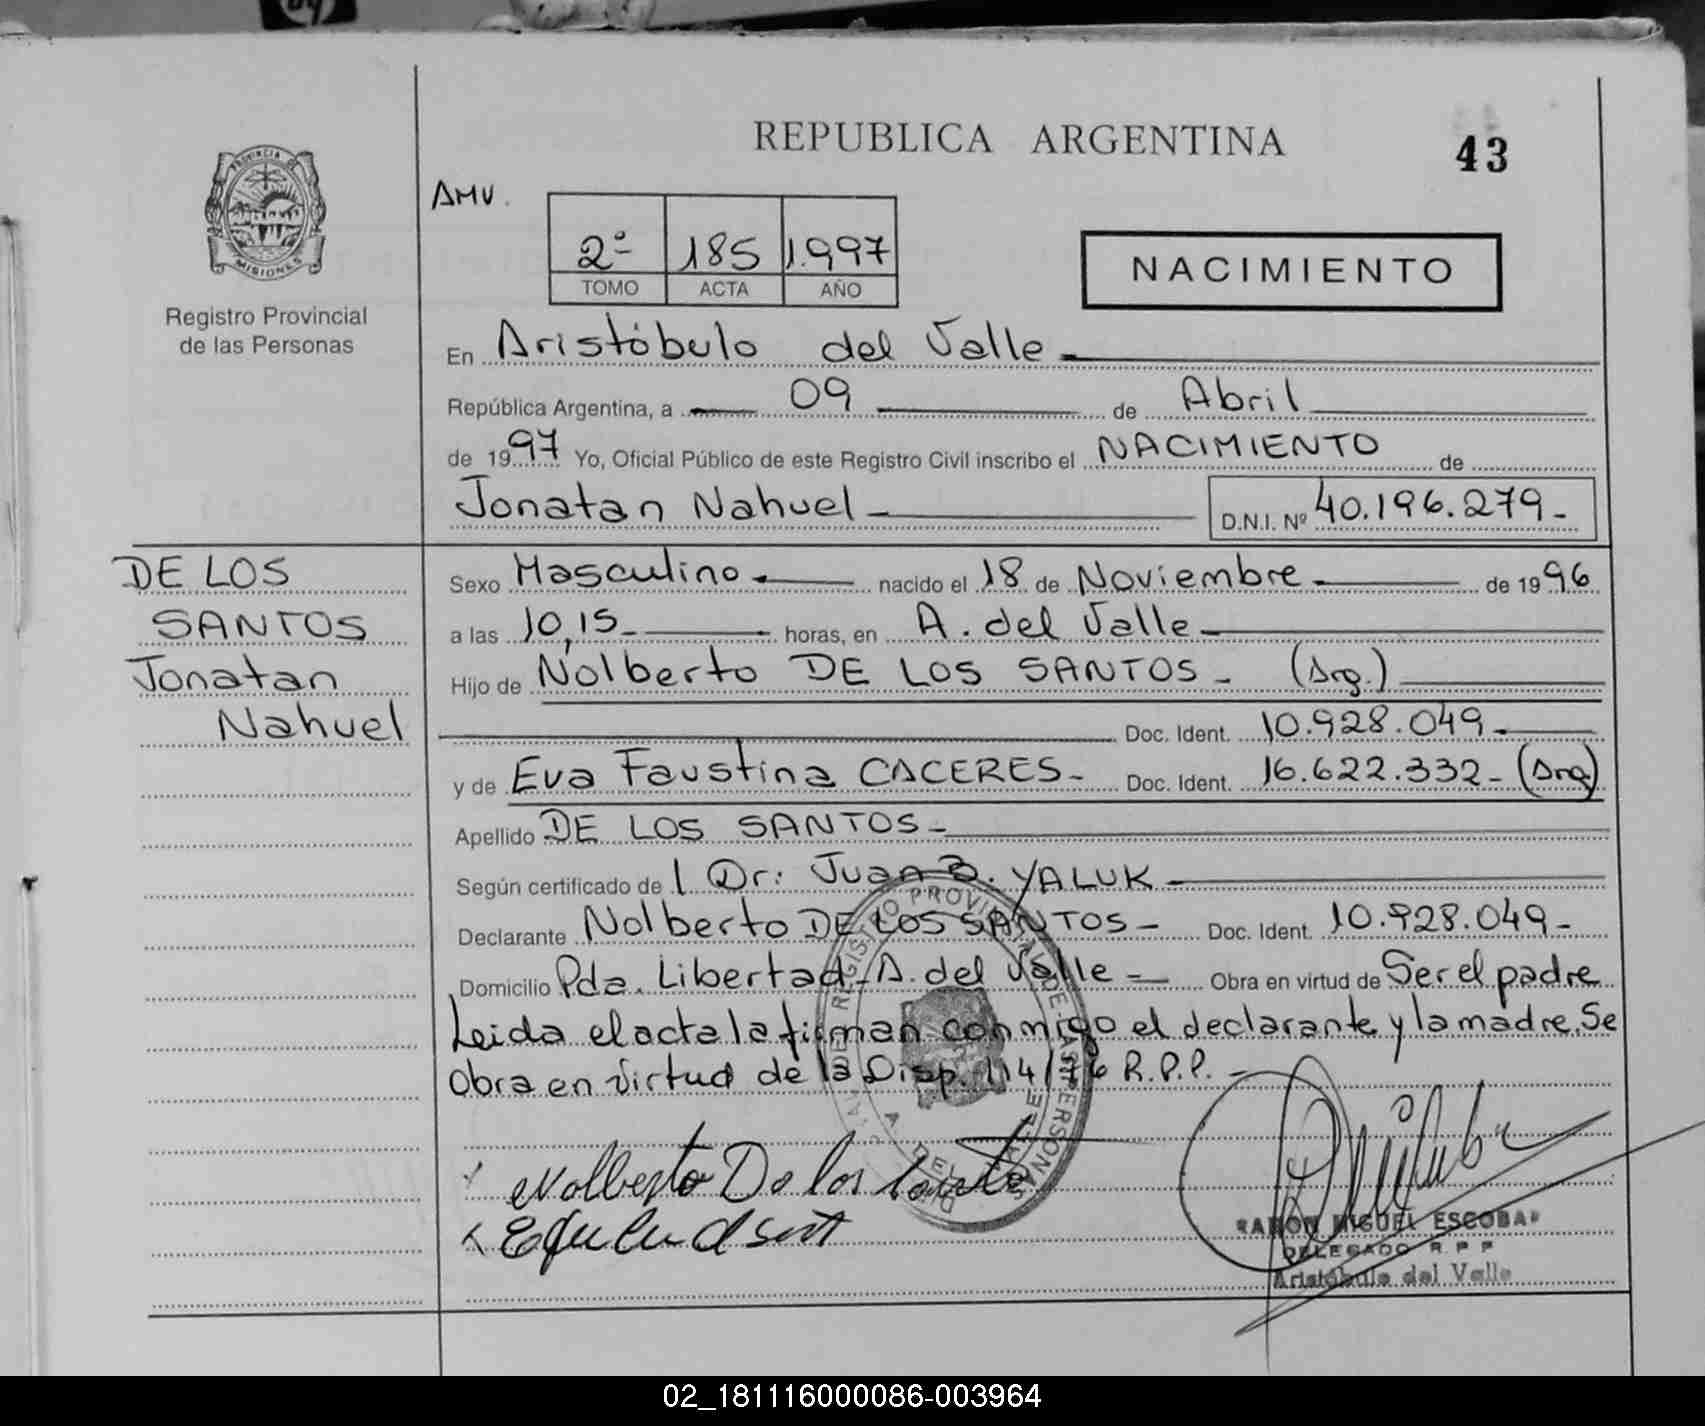 REPUBLICA ARGENTINA
43
PROVINCIA DE
MISIONES
Registro Provincial
de las Personas
AMV.
2º 185 1.997
TOMO ACTA AÑO
NACIMIENTO
En Aristóbulo del Valle
República Argentina, a 09 de Abril
de 1997 Yo, Oficial Público de este Registro Civil inscribo el NACIMIENTO de
Jonatan Nahuel D.N.I. Nº 40.196.279-
DE LOS
SANTOS
Jonatan
Nahuel
Sexo Masculino nacido el 18 de Noviembre de 1996
a las 10,15 horas, en A. del Valle
Hijo de Nolberto DE LOS SANTOS - (Arg.)
Doc. Ident. 10.928.049
y de Eva Faustina CACERES- Doc. Ident. 16.622.332- (Arg)
Apellido DE LOS SANTOS-
Según certificado de 1 Dr: Juan B. YALUK
Declarante Nolberto DE LOS SANTOS - Doc. Ident. 10.928.049-
Domicilio Pda. Libertad-A. del Valle - Obra en virtud de Ser el padre
Leida el acta la firman conmigo el declarante y la madre. Se
Obra en virtud de la Disp. 114/76 R.P.P. -
Nolberto De los Santo
RAMON MIGUEL ESCOBAR
DELEGADO R. P. P.
Aristóbulo del Valle
02_181116000086-003964